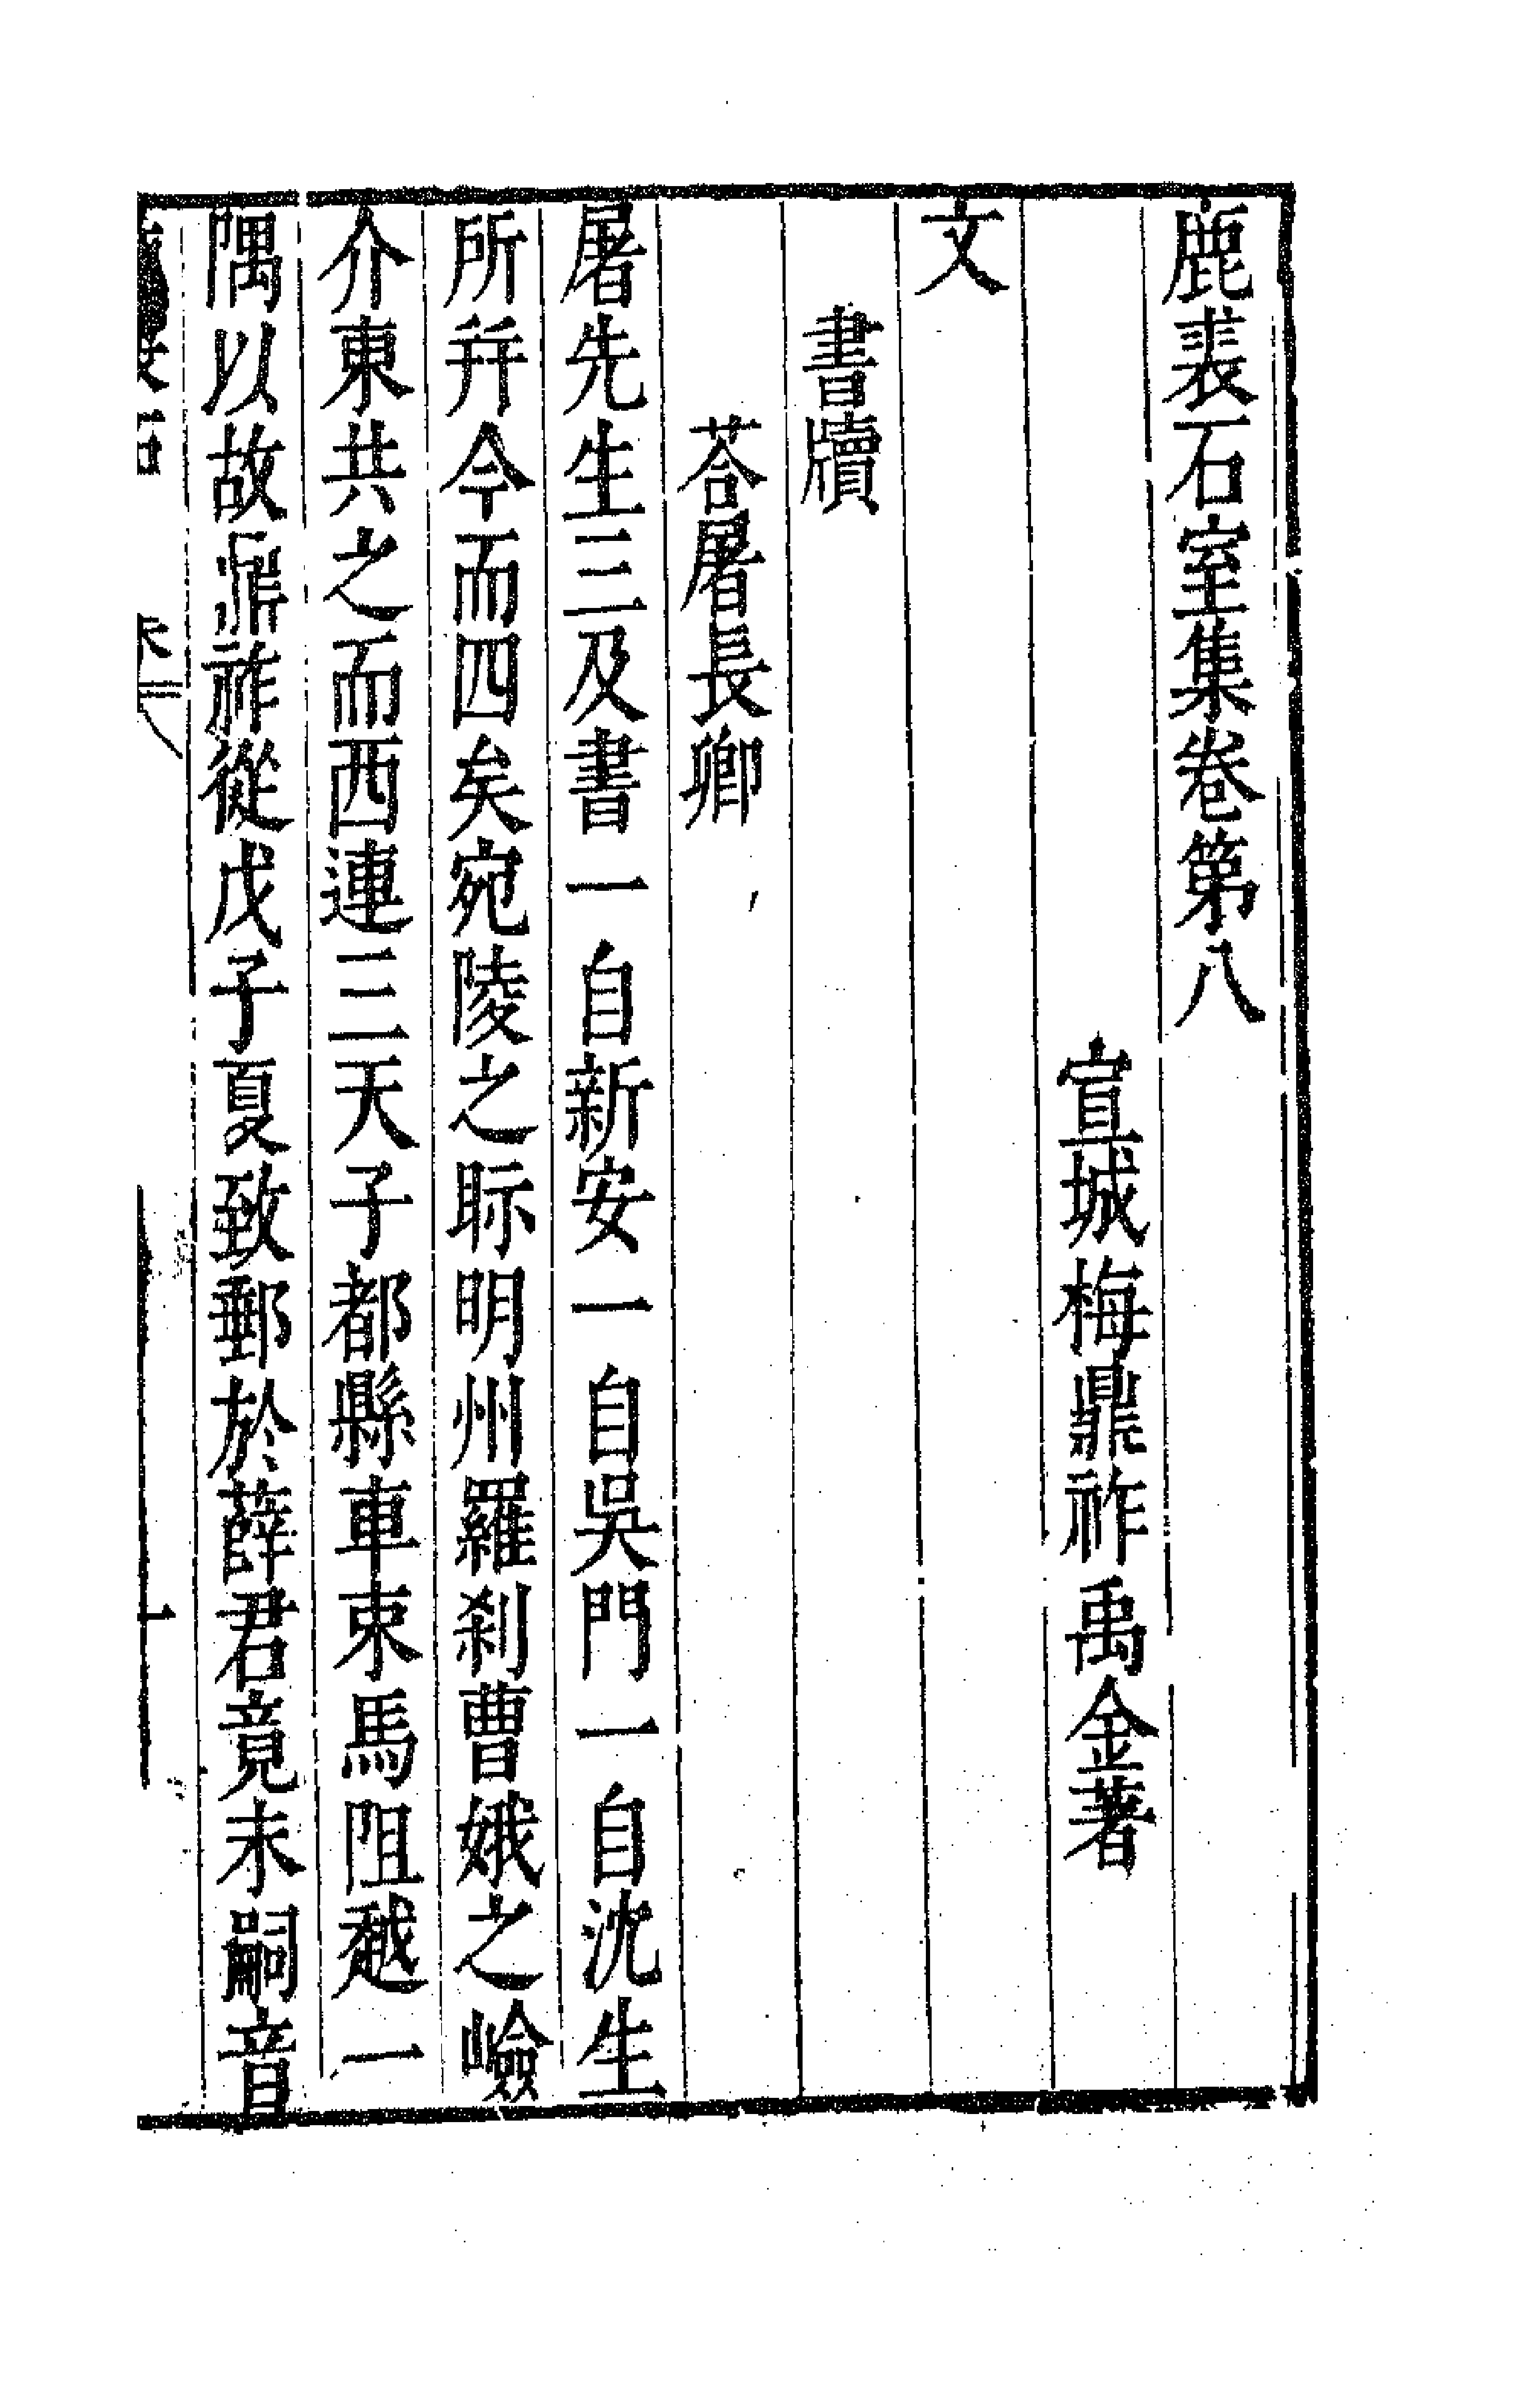 鹿裘石室集卷第八
宣城梅鼎祚禹金著
文
書牘
荅屠長卿
屠先生三及書一自新安一自吳門一自沈生
所幷今而四矣宛陵之眎明州羅刹曹娥之嶮
介東共之而西連三天子都縣車束馬阻越一
隅以故鼎祚從戊子夏致郵於薛君竟未嗣音